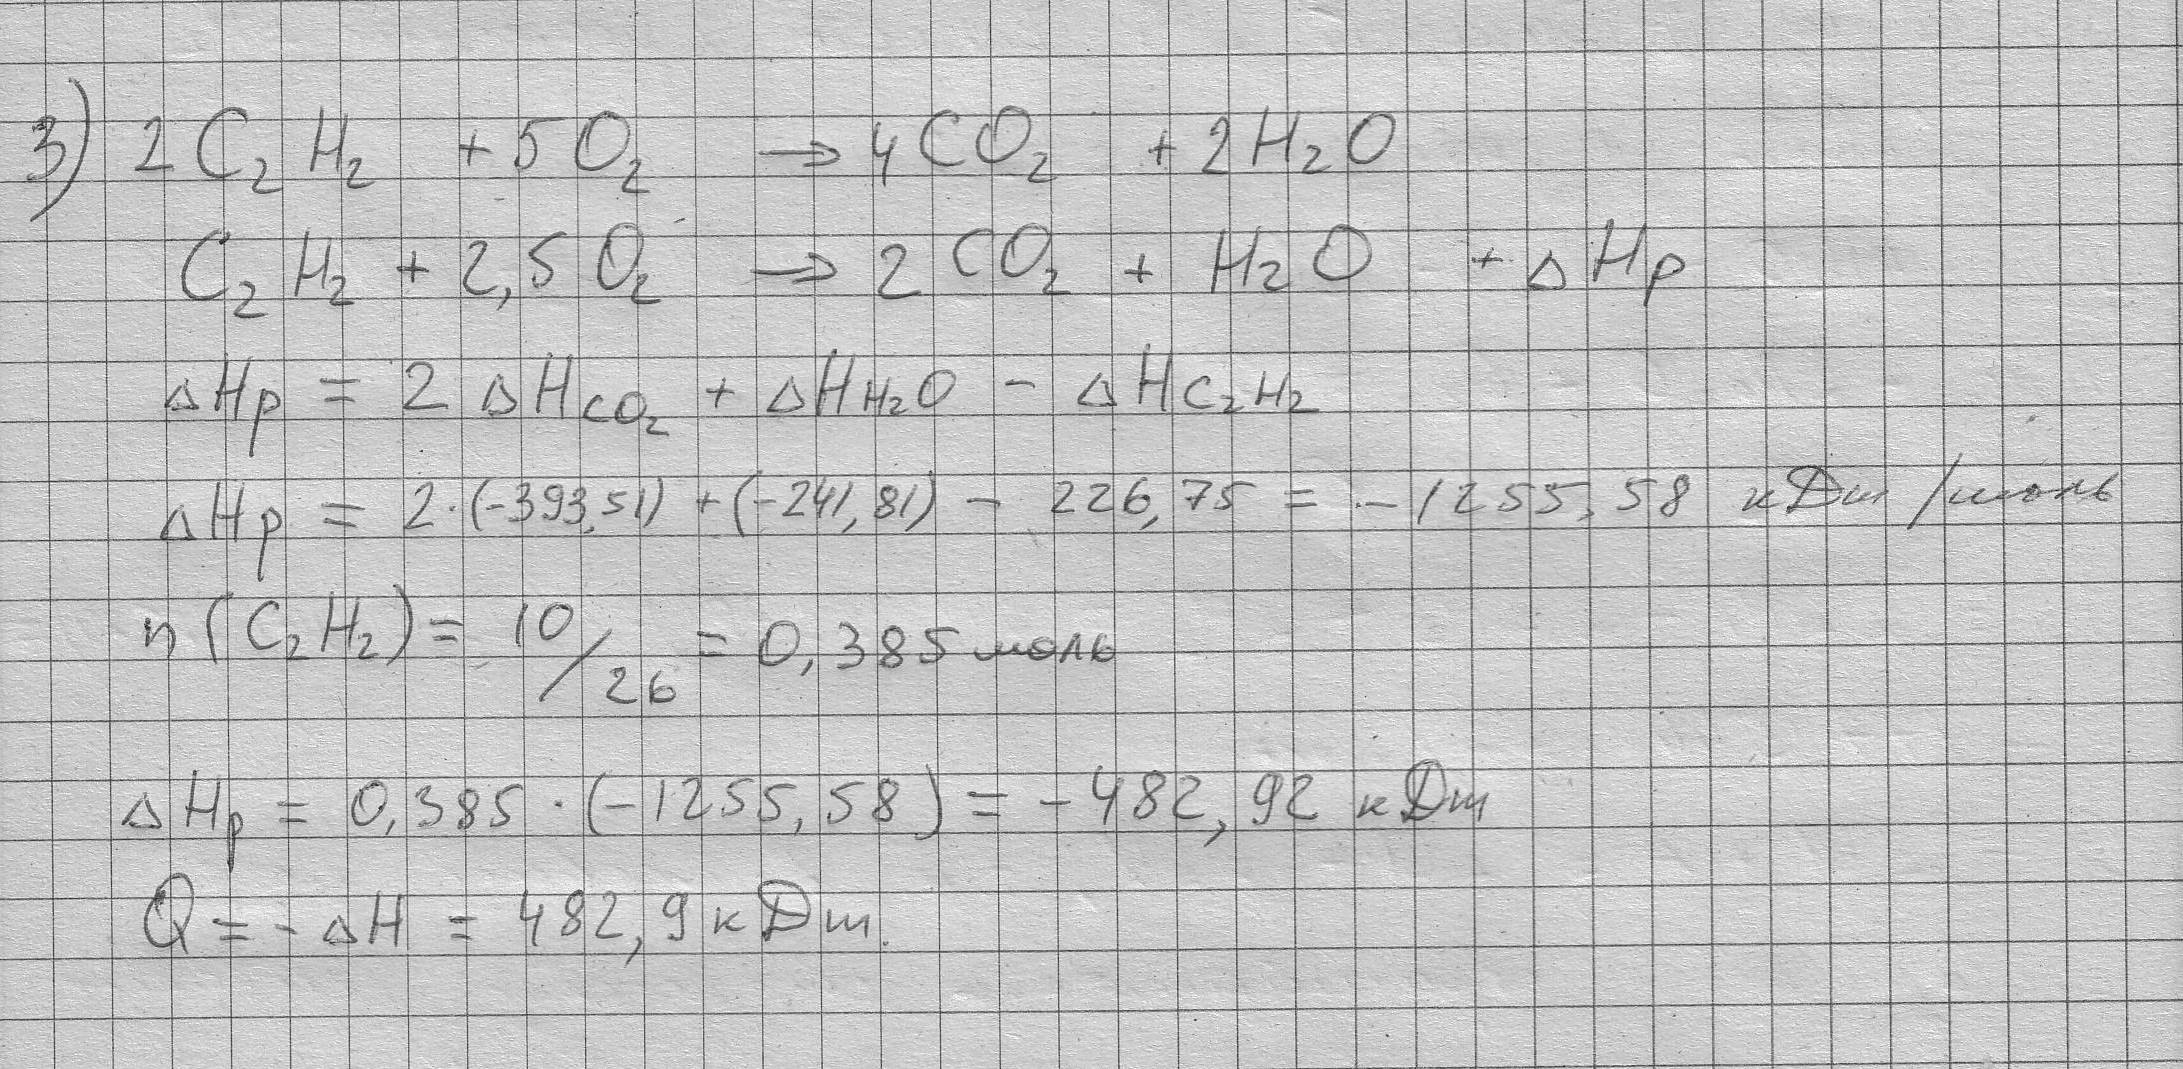 3) 2C₂H₂ + 5O₂ → 4CO₂ + 2H₂O
C₂H₂ + 2,5O₂ → 2CO₂ + H₂O + ΔHр
ΔHр = 2ΔHCO₂ + ΔHH₂O - ΔHC₂H₂
ΔHр = 2·(-393,51) + (-241,81) - 226,75 = -1255,58 кДж/моль
n(C₂H₂) = 10/26 = 0,385 моль
ΔHр = 0,385 · (-1255,58) = -482,92 кДж
Q = -ΔH = 482,9 кДж.